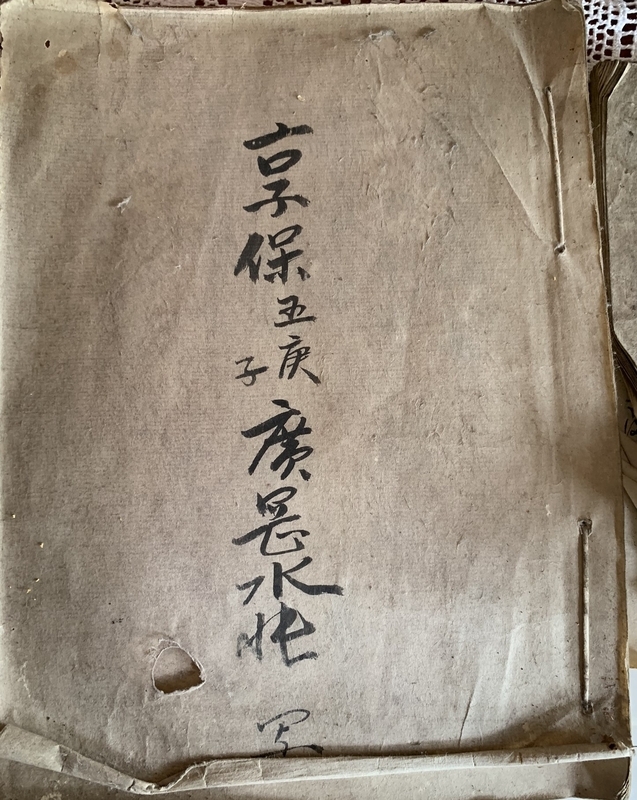 享保五庚子廣罡水帳 写